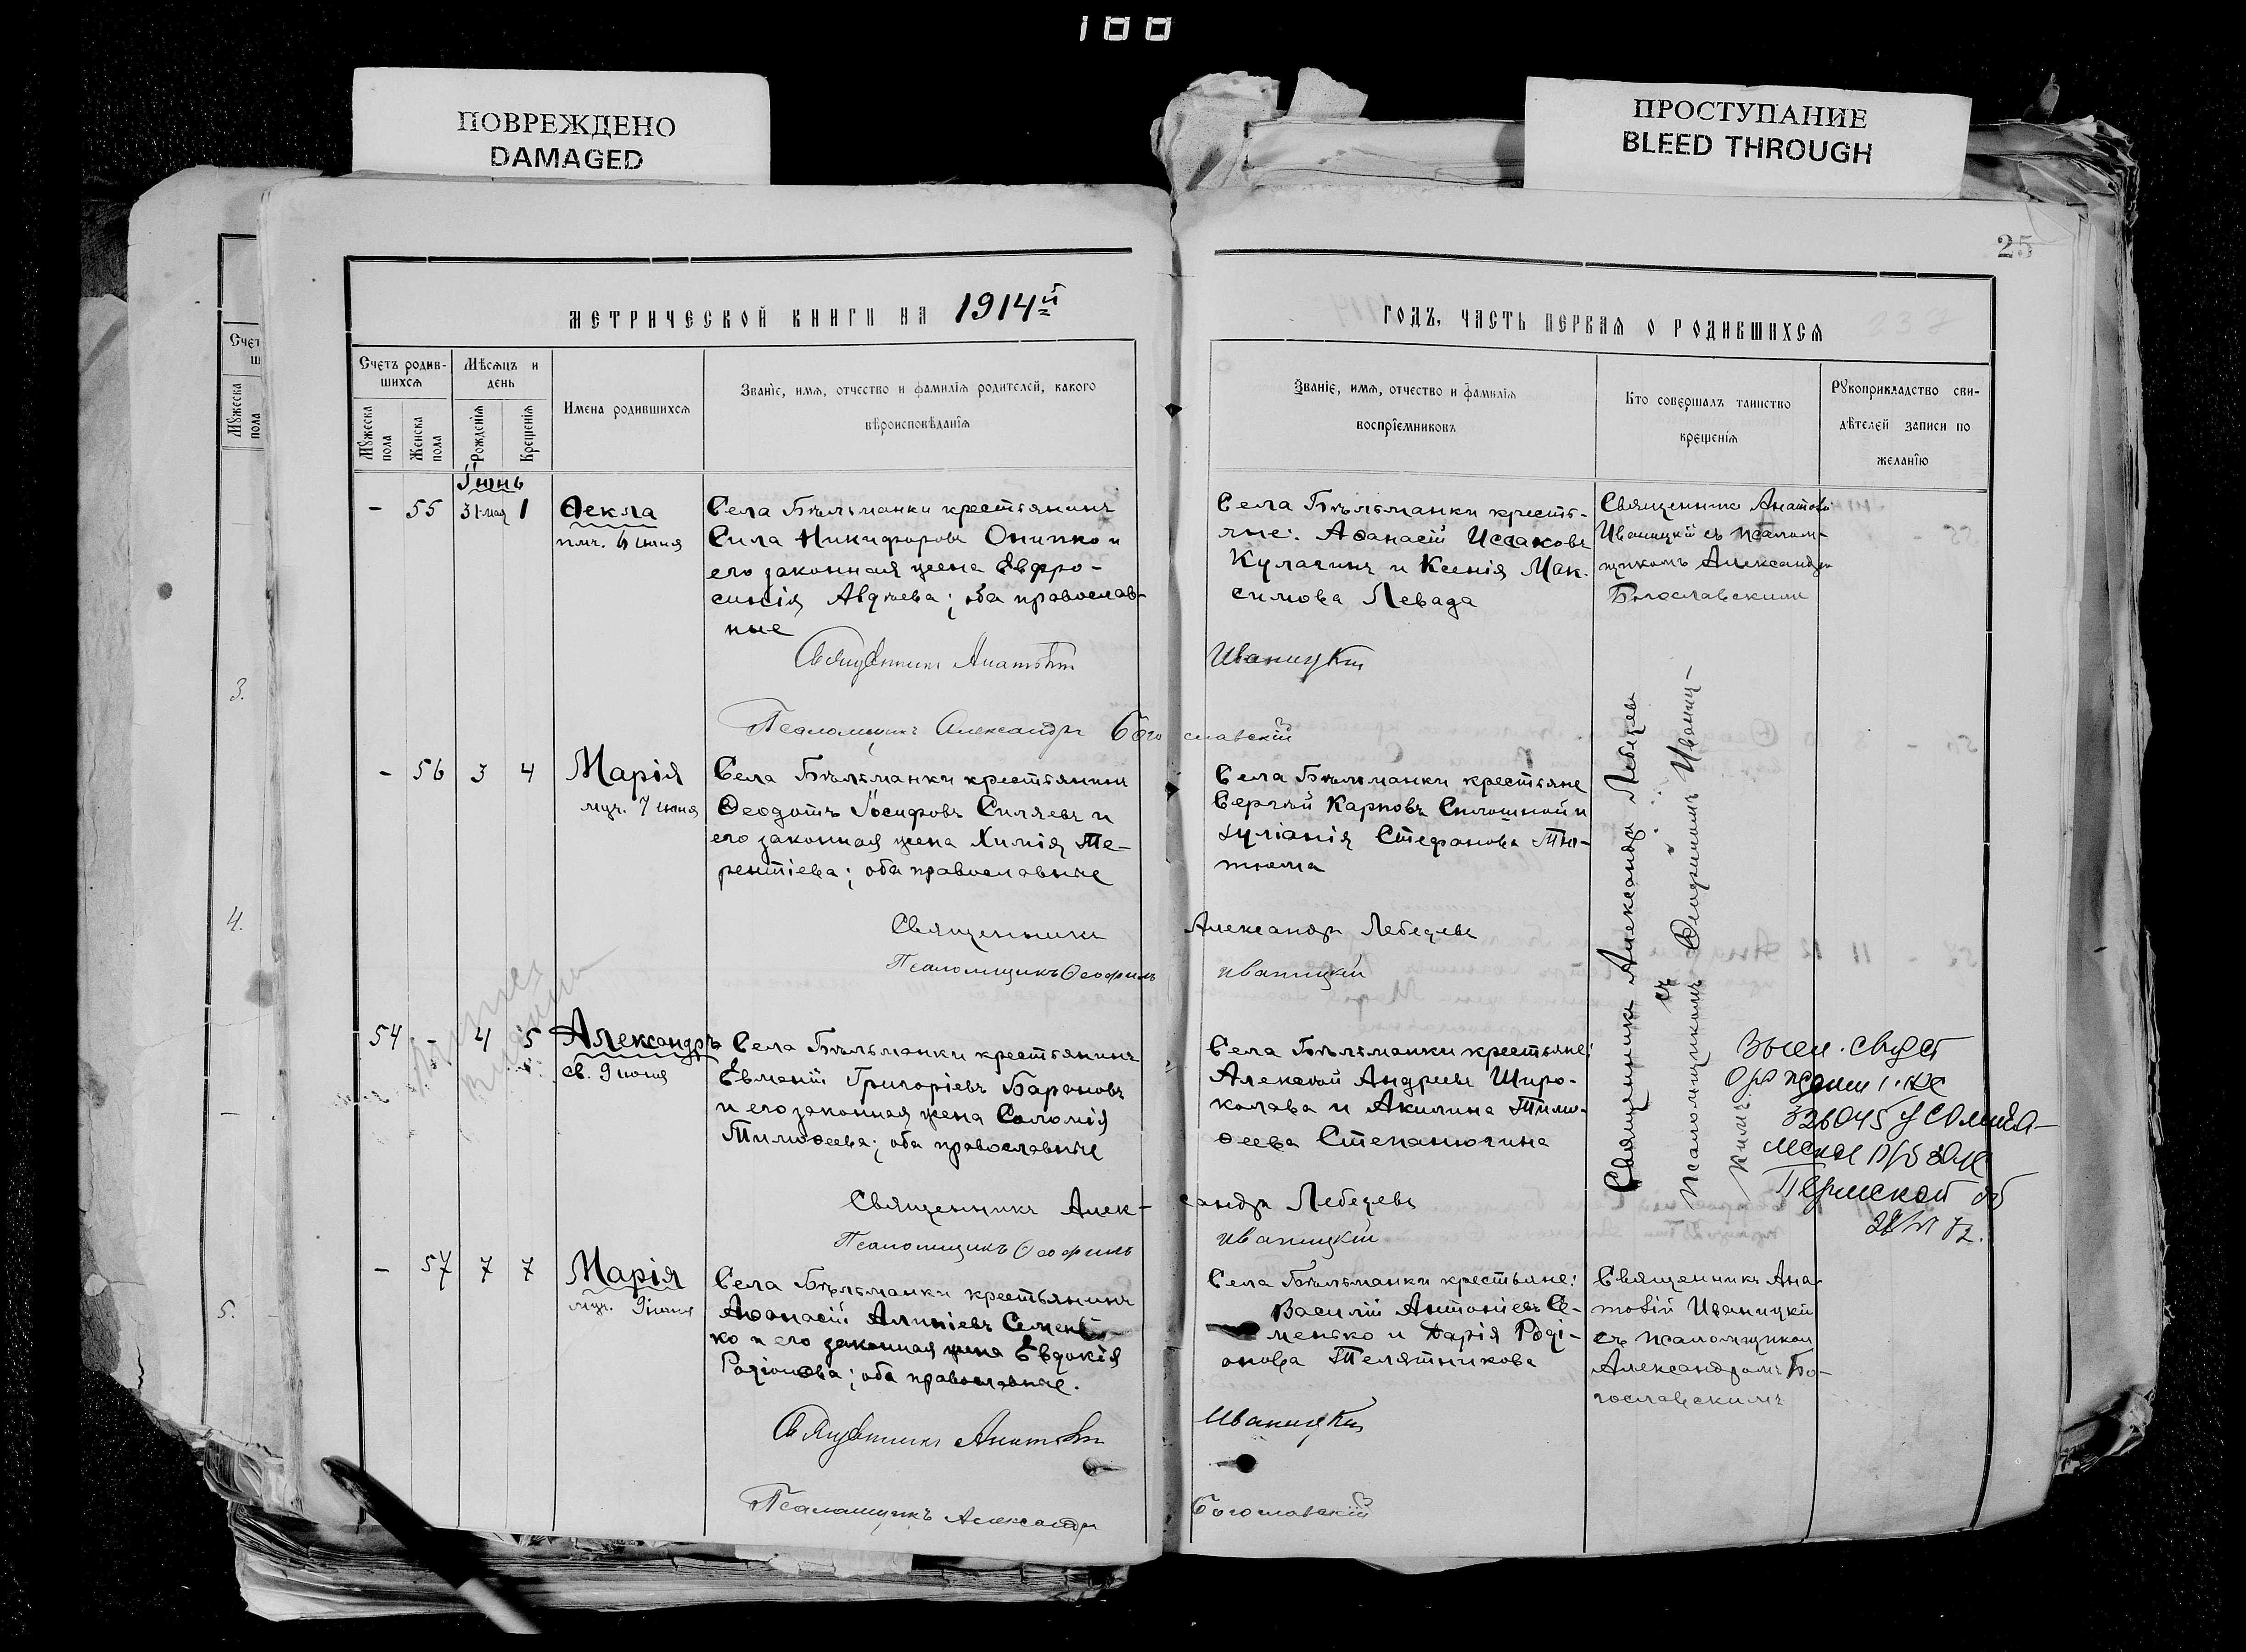 100
ПОВРЕЖДЕНО
DAMAGED
ПРОСТУПАНИЕ
BLEED THROUGH
25
МЕТРИЧЕСКОЙ КНИГИ НА 1914й
ГОДЪ, ЧАСТЬ ПЕРВАЯ О РОДИВШИХСЯ
Счетъ родив-
шихся
Мѣсяцъ и
день
Мужеска
пола
Женска
пола
Рожденія
Крещенія
Имена родившихся
Званіе, имя, отчество и фамилія родителей, какого
вѣроисповѣданія
Званіе, имя, отчество и фамилія
воспріемниковъ
Кто совершалъ таинство
крещенія
Рукоприкладство сви-
дѣтелей записи по
желанію
Счет
Мужеска
пола
3.
4.
5.
Іюнь
- 55 31 мая 1
Ѳекла
Села Бѣльманки крестьянинъ
Сила Никифоровъ Онипко и
его законная жена Евфро-
синія Авдѣева; оба православ-
ные
Села Бѣльманки кресть-
яне: Аѳанасій Исааковъ
Кулагинъ и Ксенія Мак-
симова Левада
Священникъ Анатолій
Иваницкій съ псалом-
щикомъ Александромъ
Богославскимъ
Священникъ Анатолій Иваницкій
Псаломщикъ Александръ Богославскій
- 56 3 4
Марія
муч. 7 іюня
Села Бѣльманки крестьянинъ
Ѳеодотъ Іосифовъ Силяевъ и
его законная жена Химія Те-
рентіева; оба православные
Села Бѣльманки крестьяне
Сергѣй Карповъ Сплошной и
Іуліанія Стефанова
Священникъ Александръ Лебедевъ
съ
псаломщикомъ Ѳеофиломъ Иваниц-
кимъ
Священникъ Александръ Лебедевъ
Псаломщикъ Ѳеофилъ Иваницкій
54 - 4 5
Александръ
св. 9 іюня
Села Бѣльманки крестьянинъ
Евменій Григоріевъ Барановъ
и его законная жена Соломія
Тимоѳеева; оба православные
Села Бѣльманки крестьяне:
Алексѣй Андреевъ Широ-
колава и Акилина Тимо-
ѳеева Степанючина
326045
Пермской об
Священникъ Александръ Лебедевъ
Псаломщикъ Ѳеофилъ Иваницкій
- 57 7 7
Марія
муч. 9 іюня
Села Бѣльманки крестьянинъ
Аѳанасій Алипіевъ Семень-
ко и его законная жена Евдокія
Родіонова; оба православные.
Села Бѣльманки крестьяне:
Василій Антоніевъ Се-
менько и Дарія Роді-
онова Телятникова
Священникъ Ана-
толій Иваницкій
съ псаломщикомъ
Александромъ Бо-
гославскимъ
Священникъ Анатолій Иваницкій
Псаломщикъ Александръ Богославскій